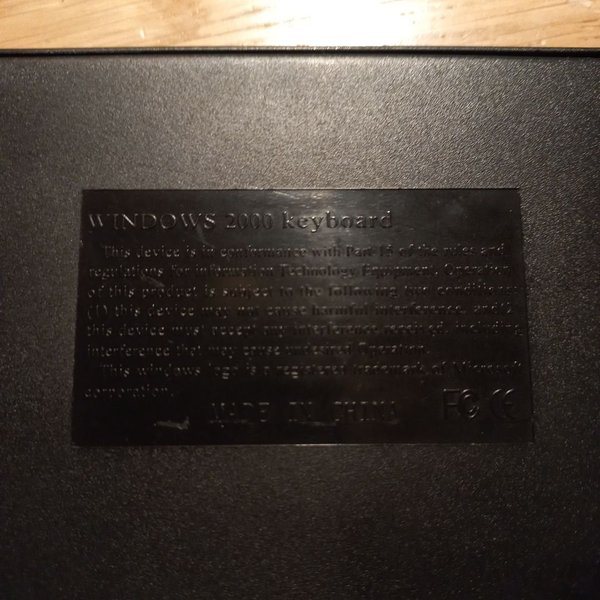 WINDOWS 2000 keyboard
This device is in conformance with Part 15 of the rules and
regulations for information Technology Equipment. Operation
of this product is subject to the following two conditions
(1) this device may not cause harmful interference, and(2
this device must accept any interference including
interference that may cause undesired Operation.
This windows logo is a registered trademark of Microsoft
corporation.
MADE IN CHINA FC CE